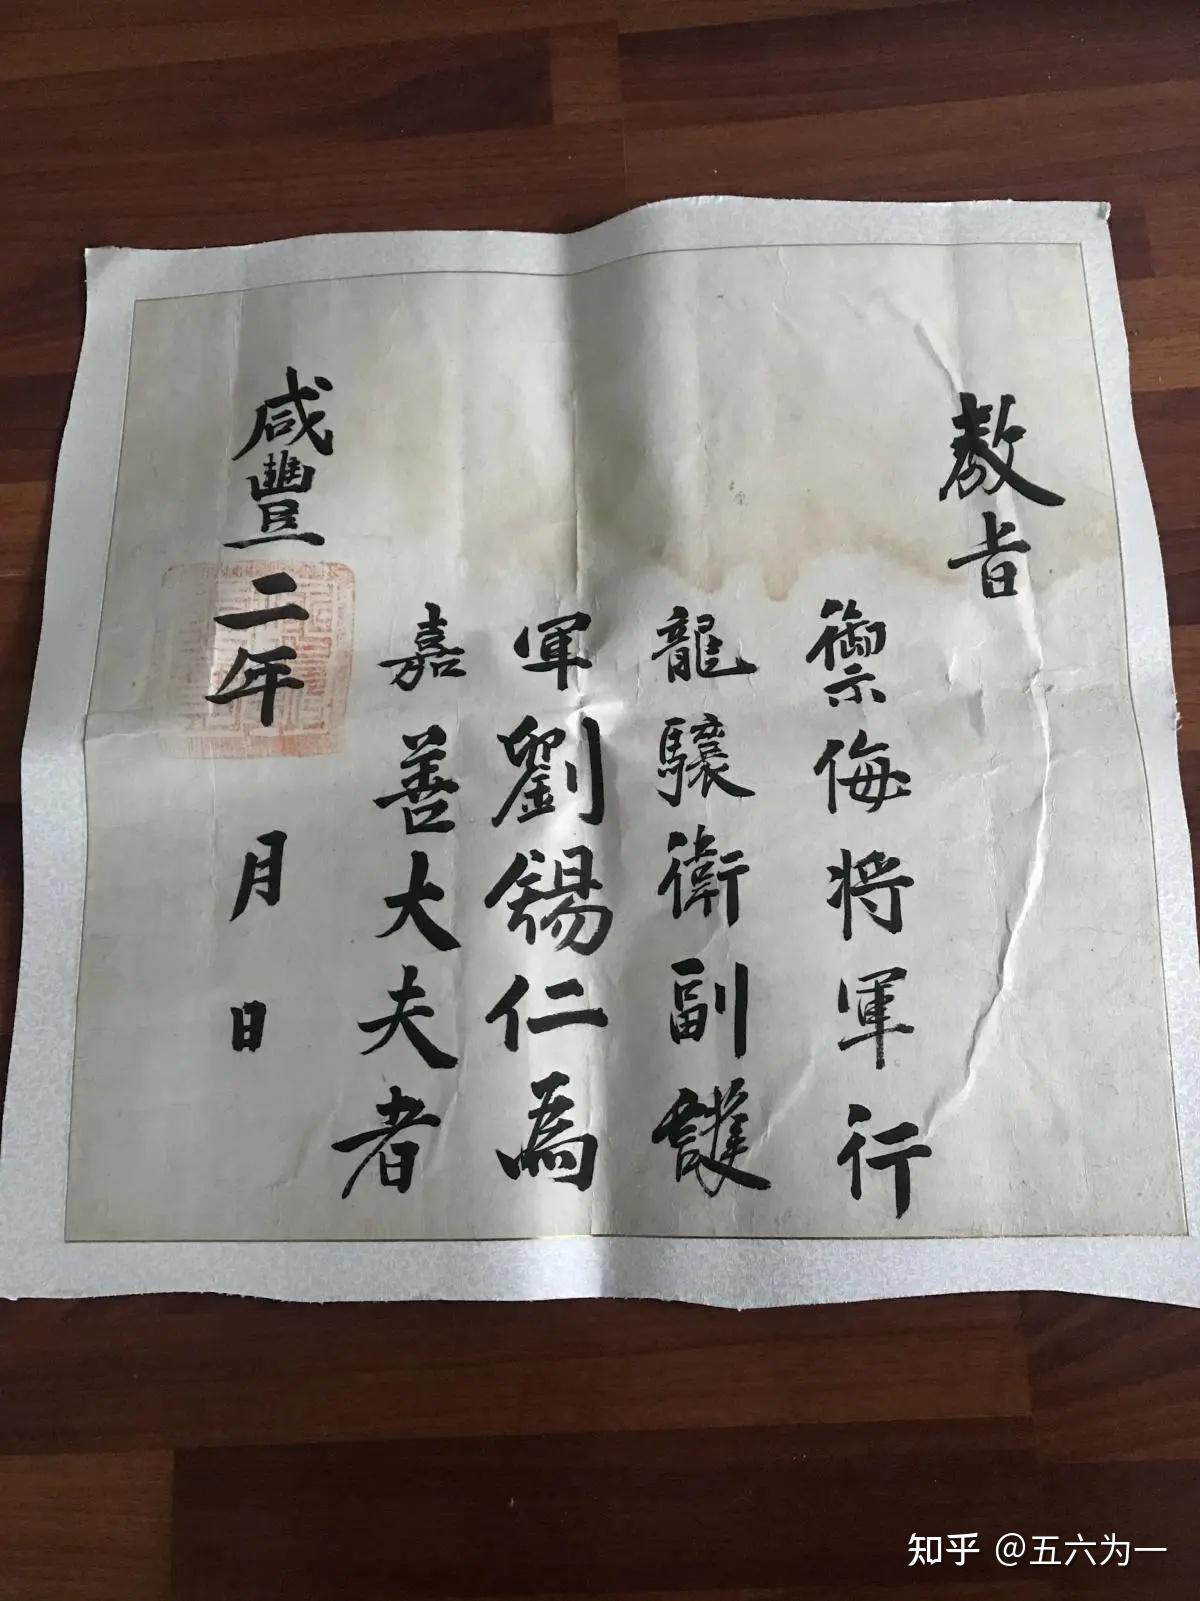 敎旨
禦侮將軍行
龍驤衛副護
軍劉錫仁爲
嘉善大夫者
咸豐二年 月 日
知乎 @五六为一